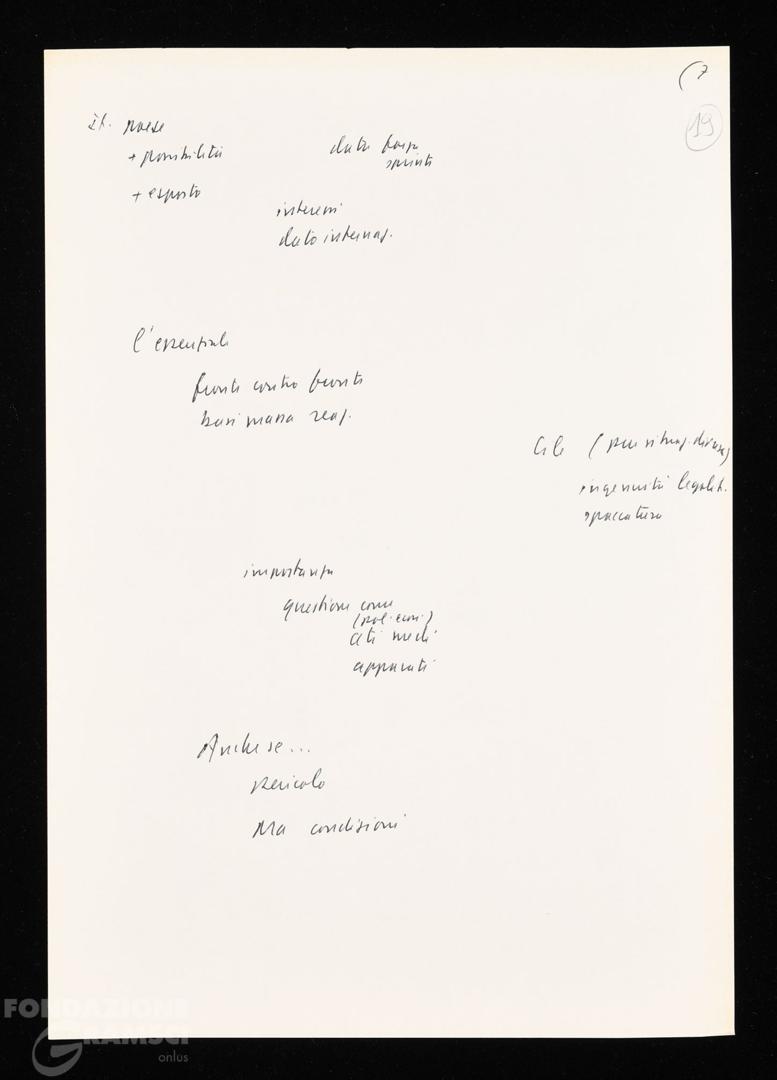 (7
19
It. paese
+ possibilità
data forza
spinte
+ esposto
interessi
dato internaz.
l'essenziale
fronte contro fronte
basi massa reaz.
Cile (pur situaz. diversa)
ingenuità legalit.
spaccatura
importanza
questione come
(pol. econ.)
ceti medi
apparati
Anche se...
pericolo
Ma condizioni
FONDAZIONE
GRAMSCI
onlus